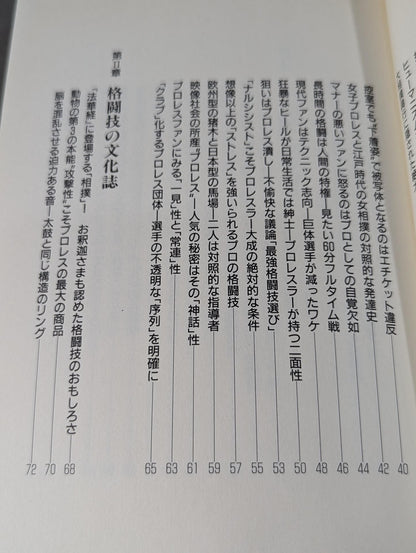 控室でも“下着姿”で被写体となるのはエチケット違反──40
女子プロレスと江戸時代の女相撲の対照的な発達史──42
マナーの悪いファンに怒るのはプロとしての自覚欠如──44
長時間の格闘は人間の特権──見たい60分フルタイム戦──46
現代ファンはテクニック志向──巨体選手が減ったワケ──48
狂暴なヒールが日常生活では紳士──プロレスラーが持つ二面性──50
狙いはプロレス潰し──不愉快な議論「最強格闘技選び」──53
「ナルシシスト」こそプロレスラー大成の絶対的な条件──55
想像以上の「ストレス」を強いられるプロの格闘技──57
欧州型の猪木と日本型の馬場──二人は対照的な指導者──59
映像社会の所産“プロレス”──人気の秘密はその「神話」性──61
プロレスファンにみる、「一見」性と「常連」性──63
「クラブ」化するプロレス団体──選手の不透明な「序列」を明確に──65
第II章 格闘技の文化誌
「法華経」に登場する、「相撲」！ お釈迦さまも認めた格闘技のおもしろさ──68
動物の第3の本能“攻撃性”こそプロレスの最大の商品──70
脳を混乱させる迫力ある音──太鼓と同じ構造のリング──72